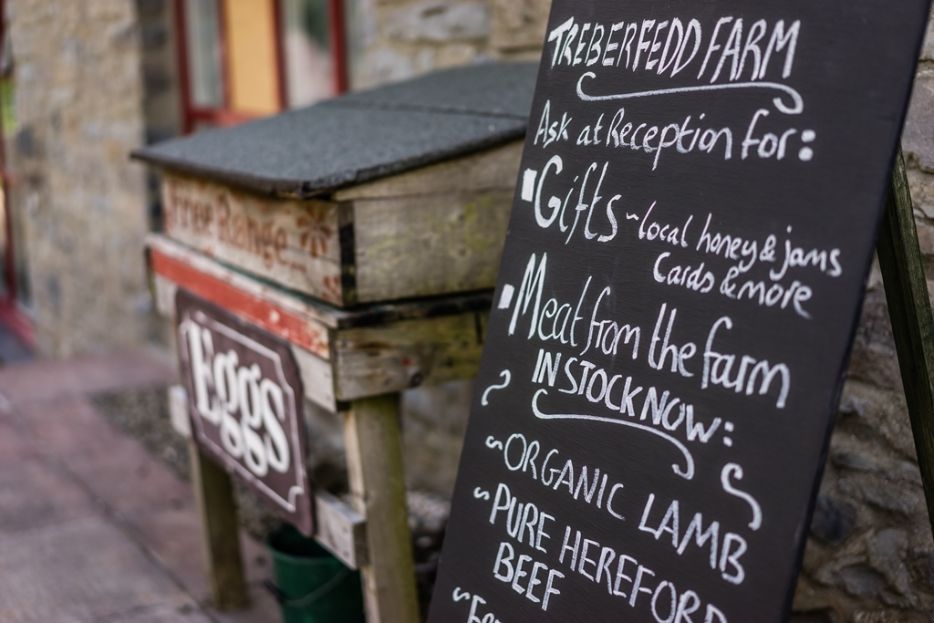 TREBERFEDD FARM
Ask at Reception for:
Gifts ~ local honey & jams
Cards & more
Meat from the farm
IN STOCK NOW:
~ ORGANIC LAMB
~ PURE HEREFORD
BEEF
Free Range
Eggs